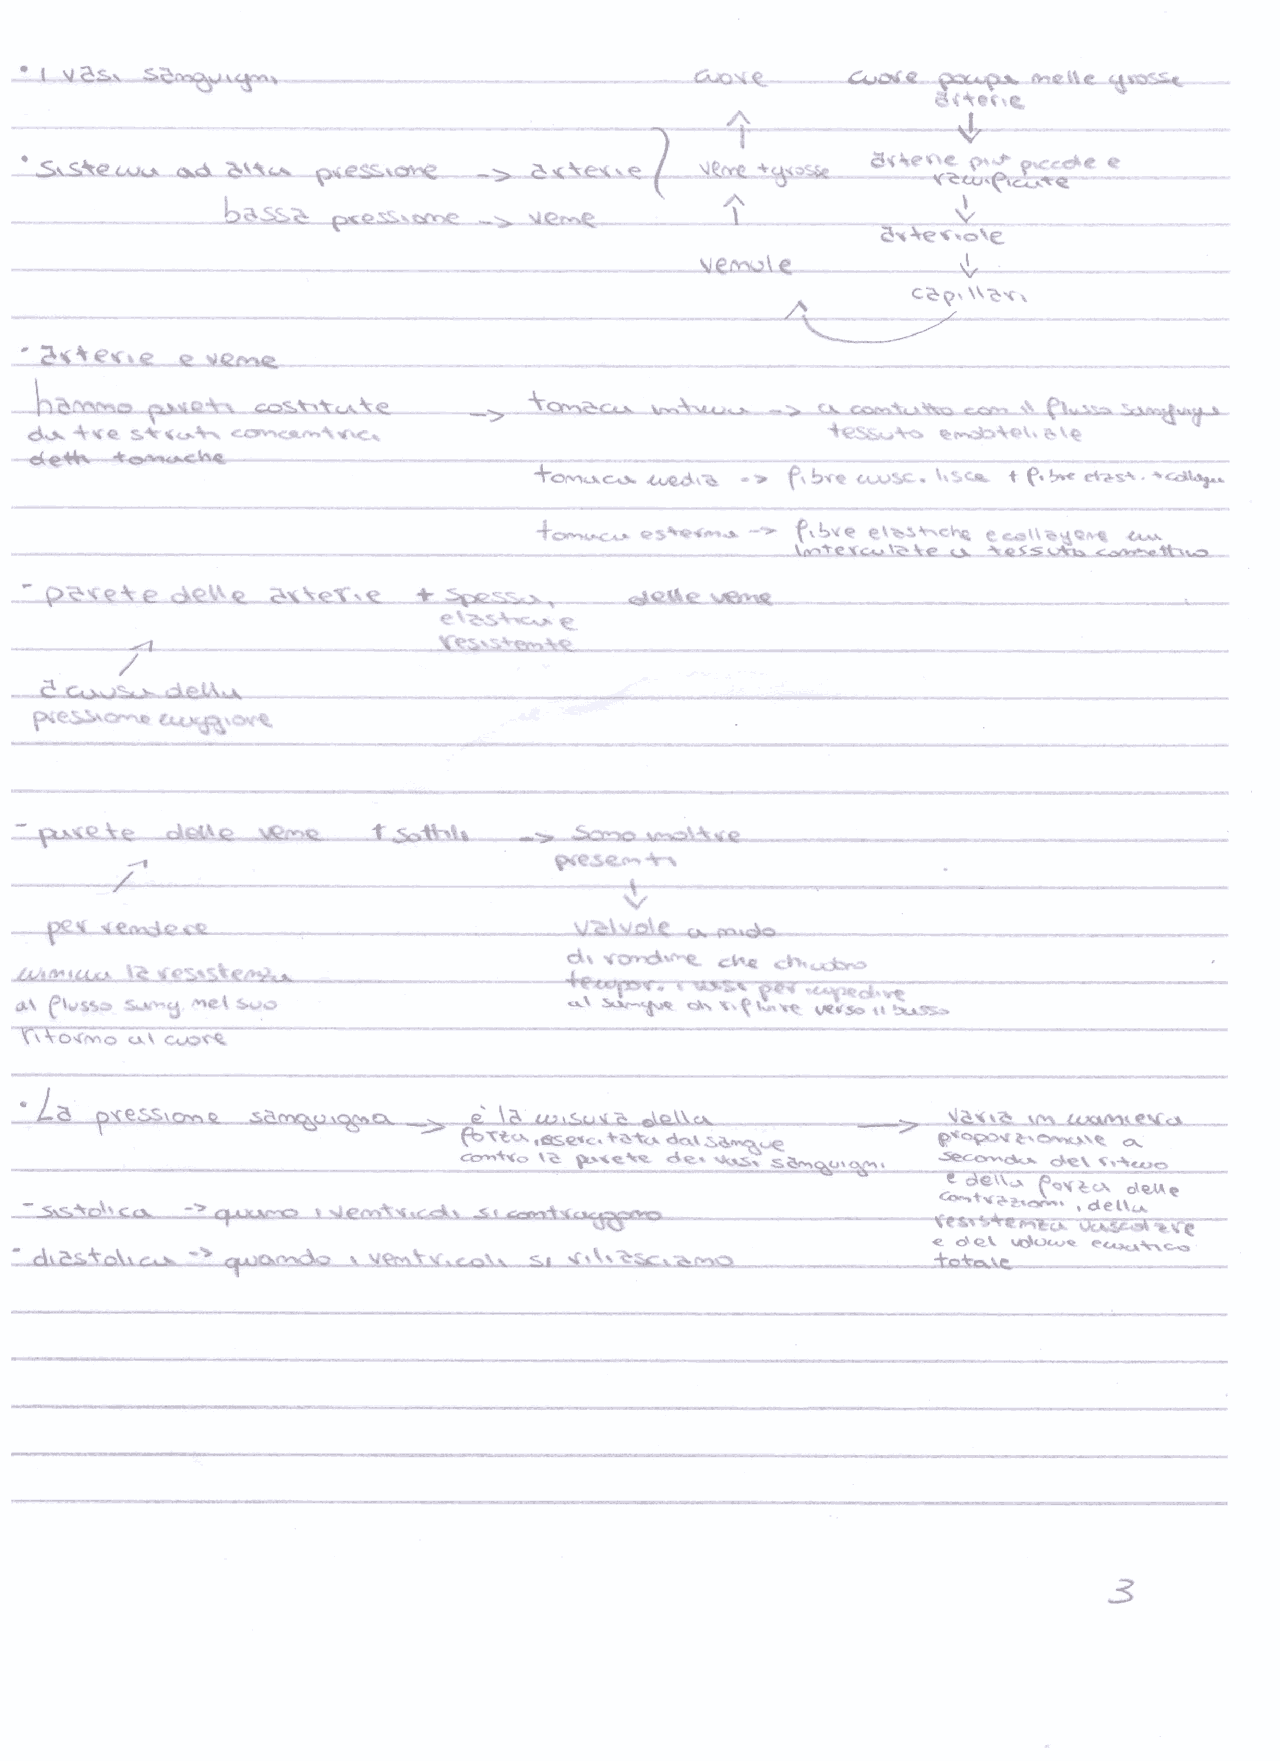 • I vasi sanguigni
cuore
cuore pompa nelle grosse
arterie
• Sistema ad alta pressione -> arterie
vene + grosse
arterie più piccole e
ramificate
bassa pressione -> vene
arteriole
venule
capillari
- arterie e vene
hanno pareti costituite -> tonaca interna -> a contatto con il flusso sanguigno
da tre strati concentrici
tessuto endoteliale
detti tonache
tonaca media -> fibre musc. lisce + fibre elast. + collagene
tonaca esterna -> fibre elastiche e collagene
intercalate a tessuto connettivo
- parete delle arterie + spessa, delle vene
elastica e
resistente
a causa della
pressione maggiore
- parete delle vene + sottili -> sono inoltre
presenti
per rendere
valvole a nido
di rondine che chiudono
minima la resistenza
tempor. i vasi per impedire
al flusso sang. nel suo
al sangue di rifluire verso il basso
ritorno al cuore
• La pressione sanguigna -> è la misura della
forza, esercitata dal sangue
contro la parete dei vasi sanguigni
-> varia in maniera
proporzionale a
seconda del ritmo
e della forza delle
contrazioni, della
resistenza vascolare
e del volume ematico
totale
- sistolica -> quano i ventricoli si contraggono
- diastolica -> quando i ventricoli si rilasciano
3